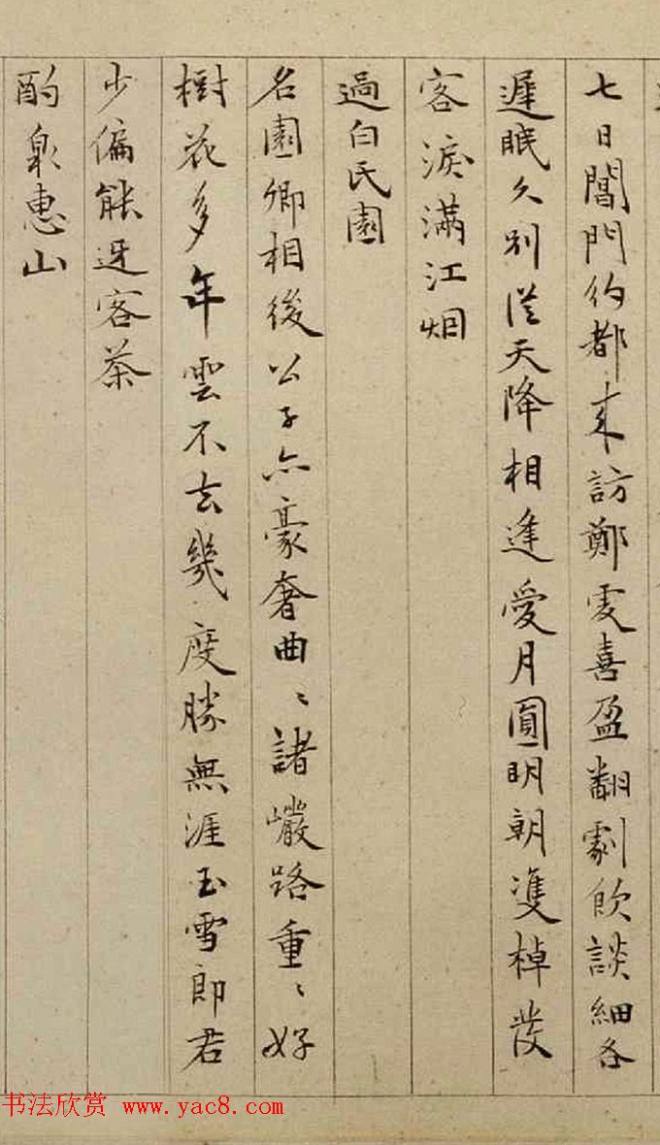 七日閶門約都來訪鄭虔喜盈翻劇飲談細各
遲眠久別從天降相逢愛月圓明朝雙棹發
客淚滿江烟
過白氏園
名園卿相後公子亦豪奢曲〻諸巖路重〻好
樹花多年雲不去幾度勝無涯玉雪郎君
少偏能迓客茶
酌泉惠山
书法欣赏 www.yac8.com